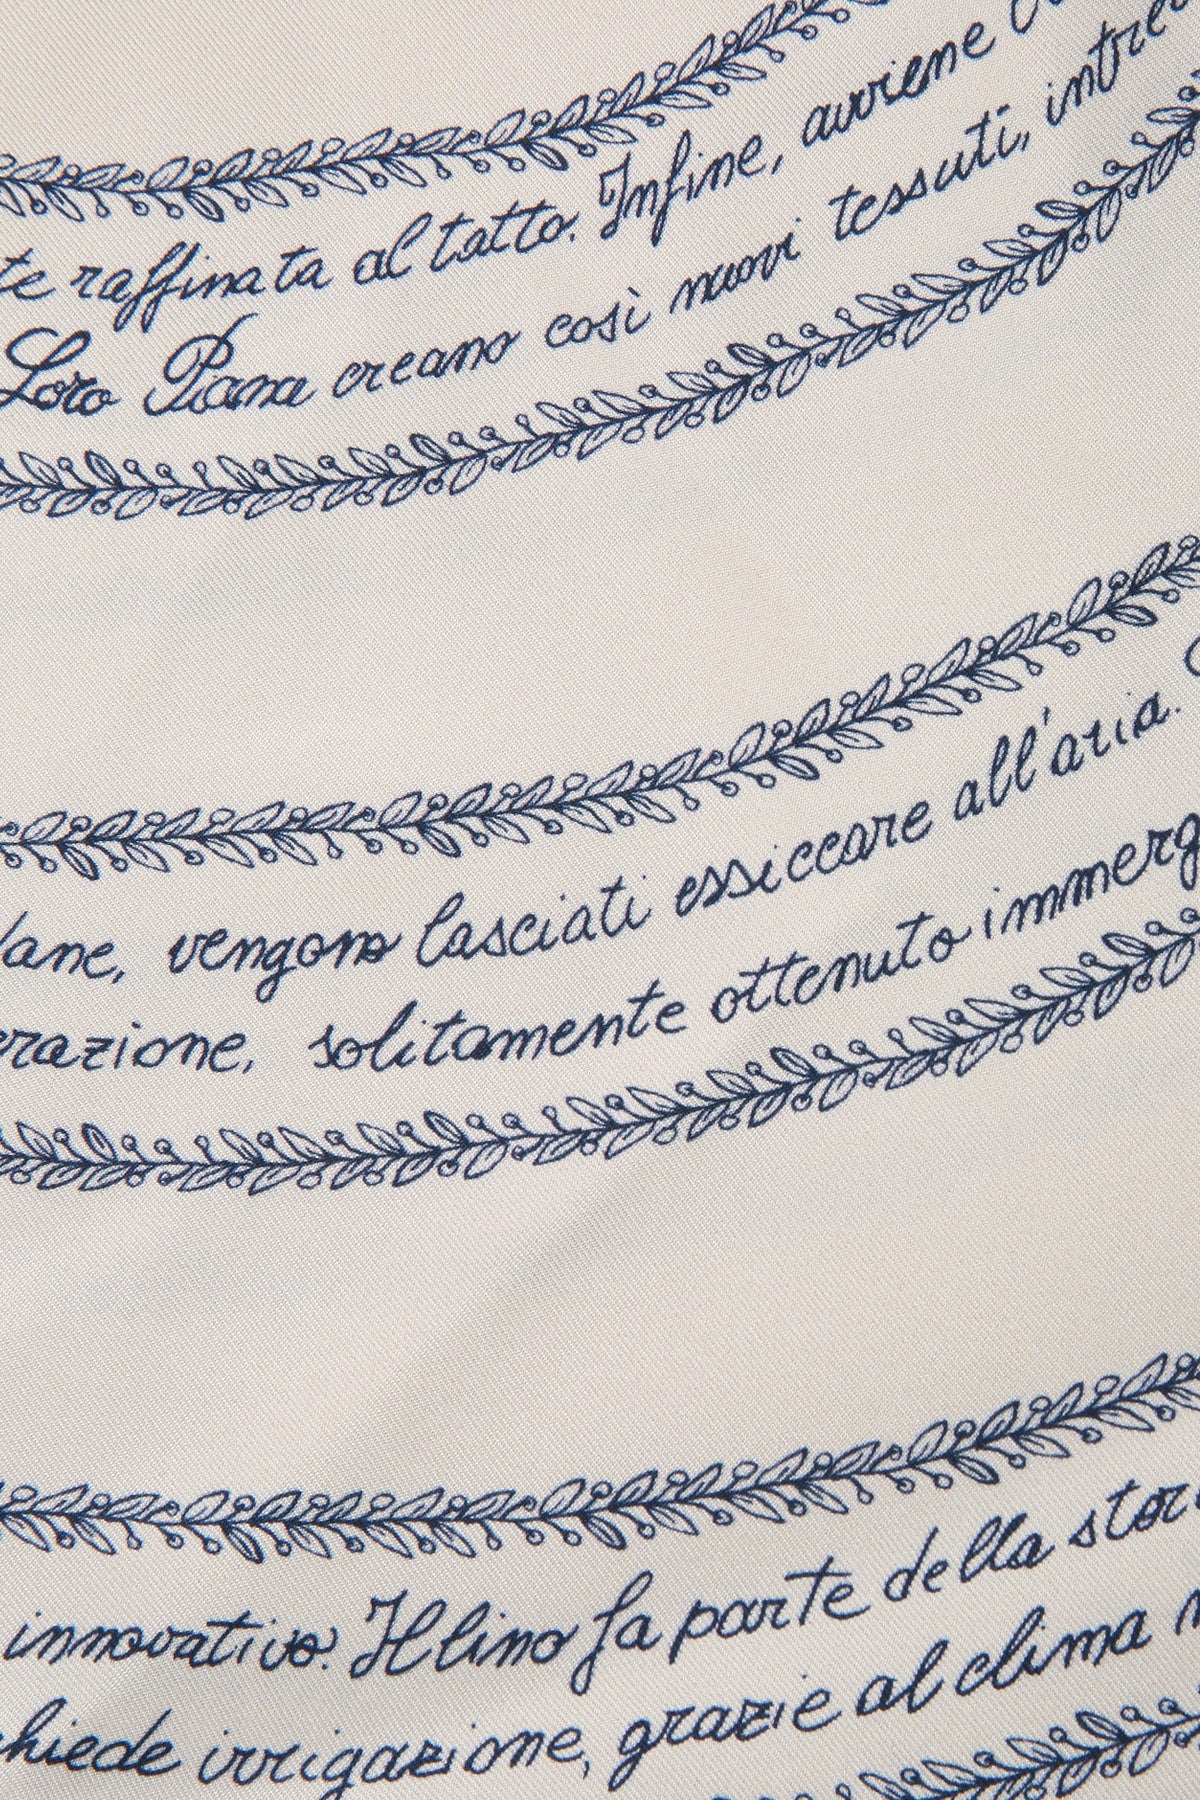 te raffinata al tatto. Infine, avviene
Loro Piana creano così nuovi tessuti, intre
lane, vengono lasciati essiccare all'aria.
erazione, solitamente ottenuto immerg
innovativo. Il lino fa parte della stor
chiede irrigazione, grazie al clima